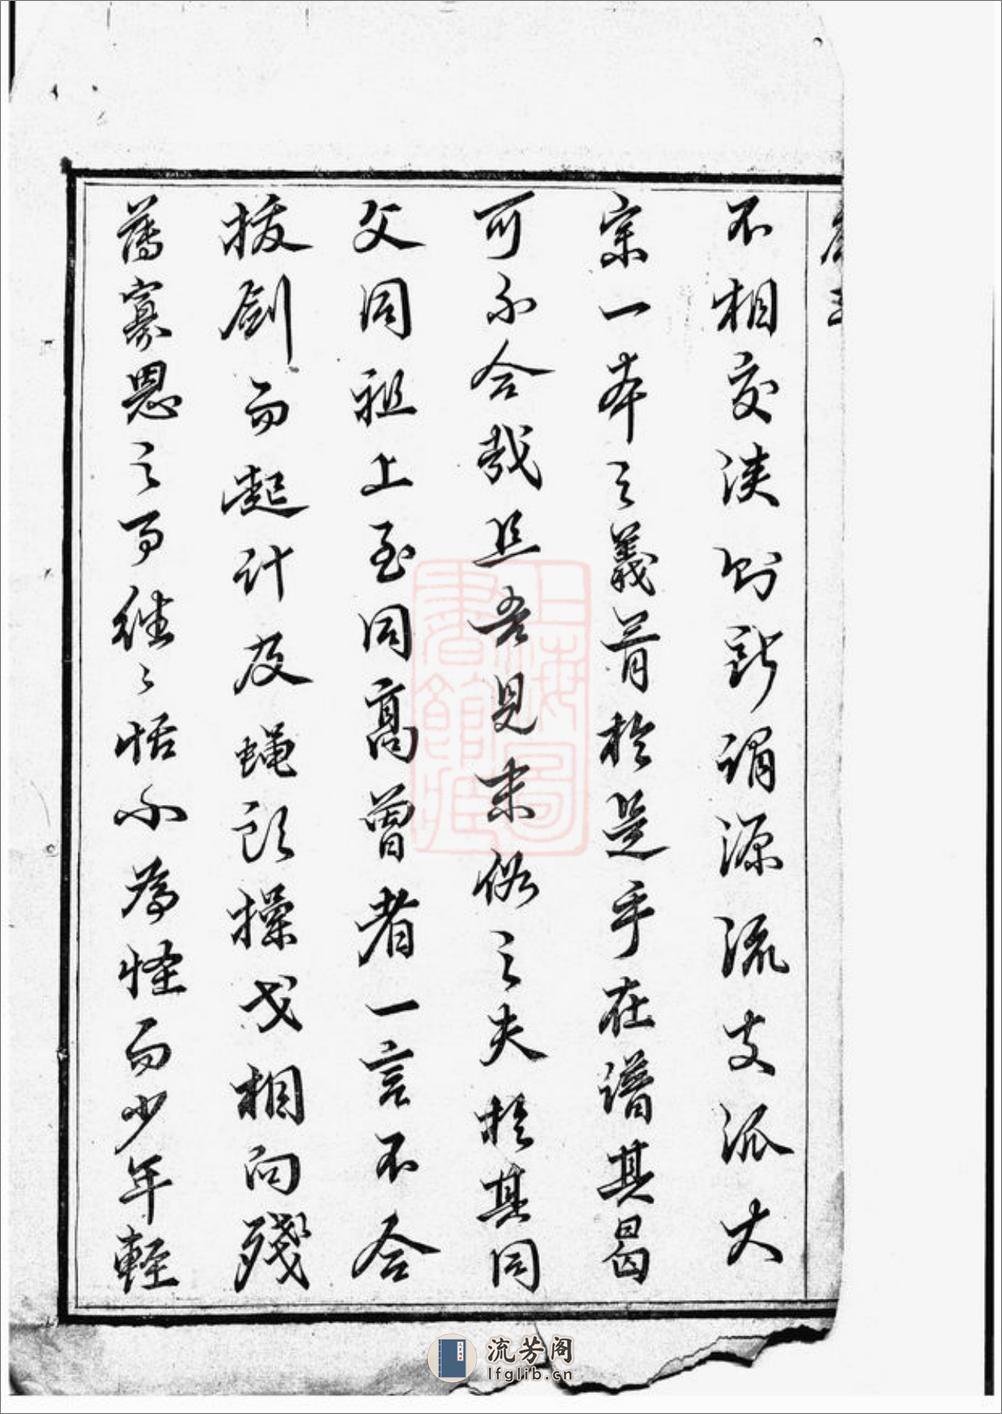 不相交浹則所謂源流支派大
宗一本之義胥於是乎在譜其曷
可不合哉且吾見末俗之夫於其同
父同祖上至同高曾者一言不合
拔劍而起計及蠅頭操戈相向殘
薄寡恩之事往々恬不為怪而少年輕
上海圖書館藏
流芳阁
lfglib.cn